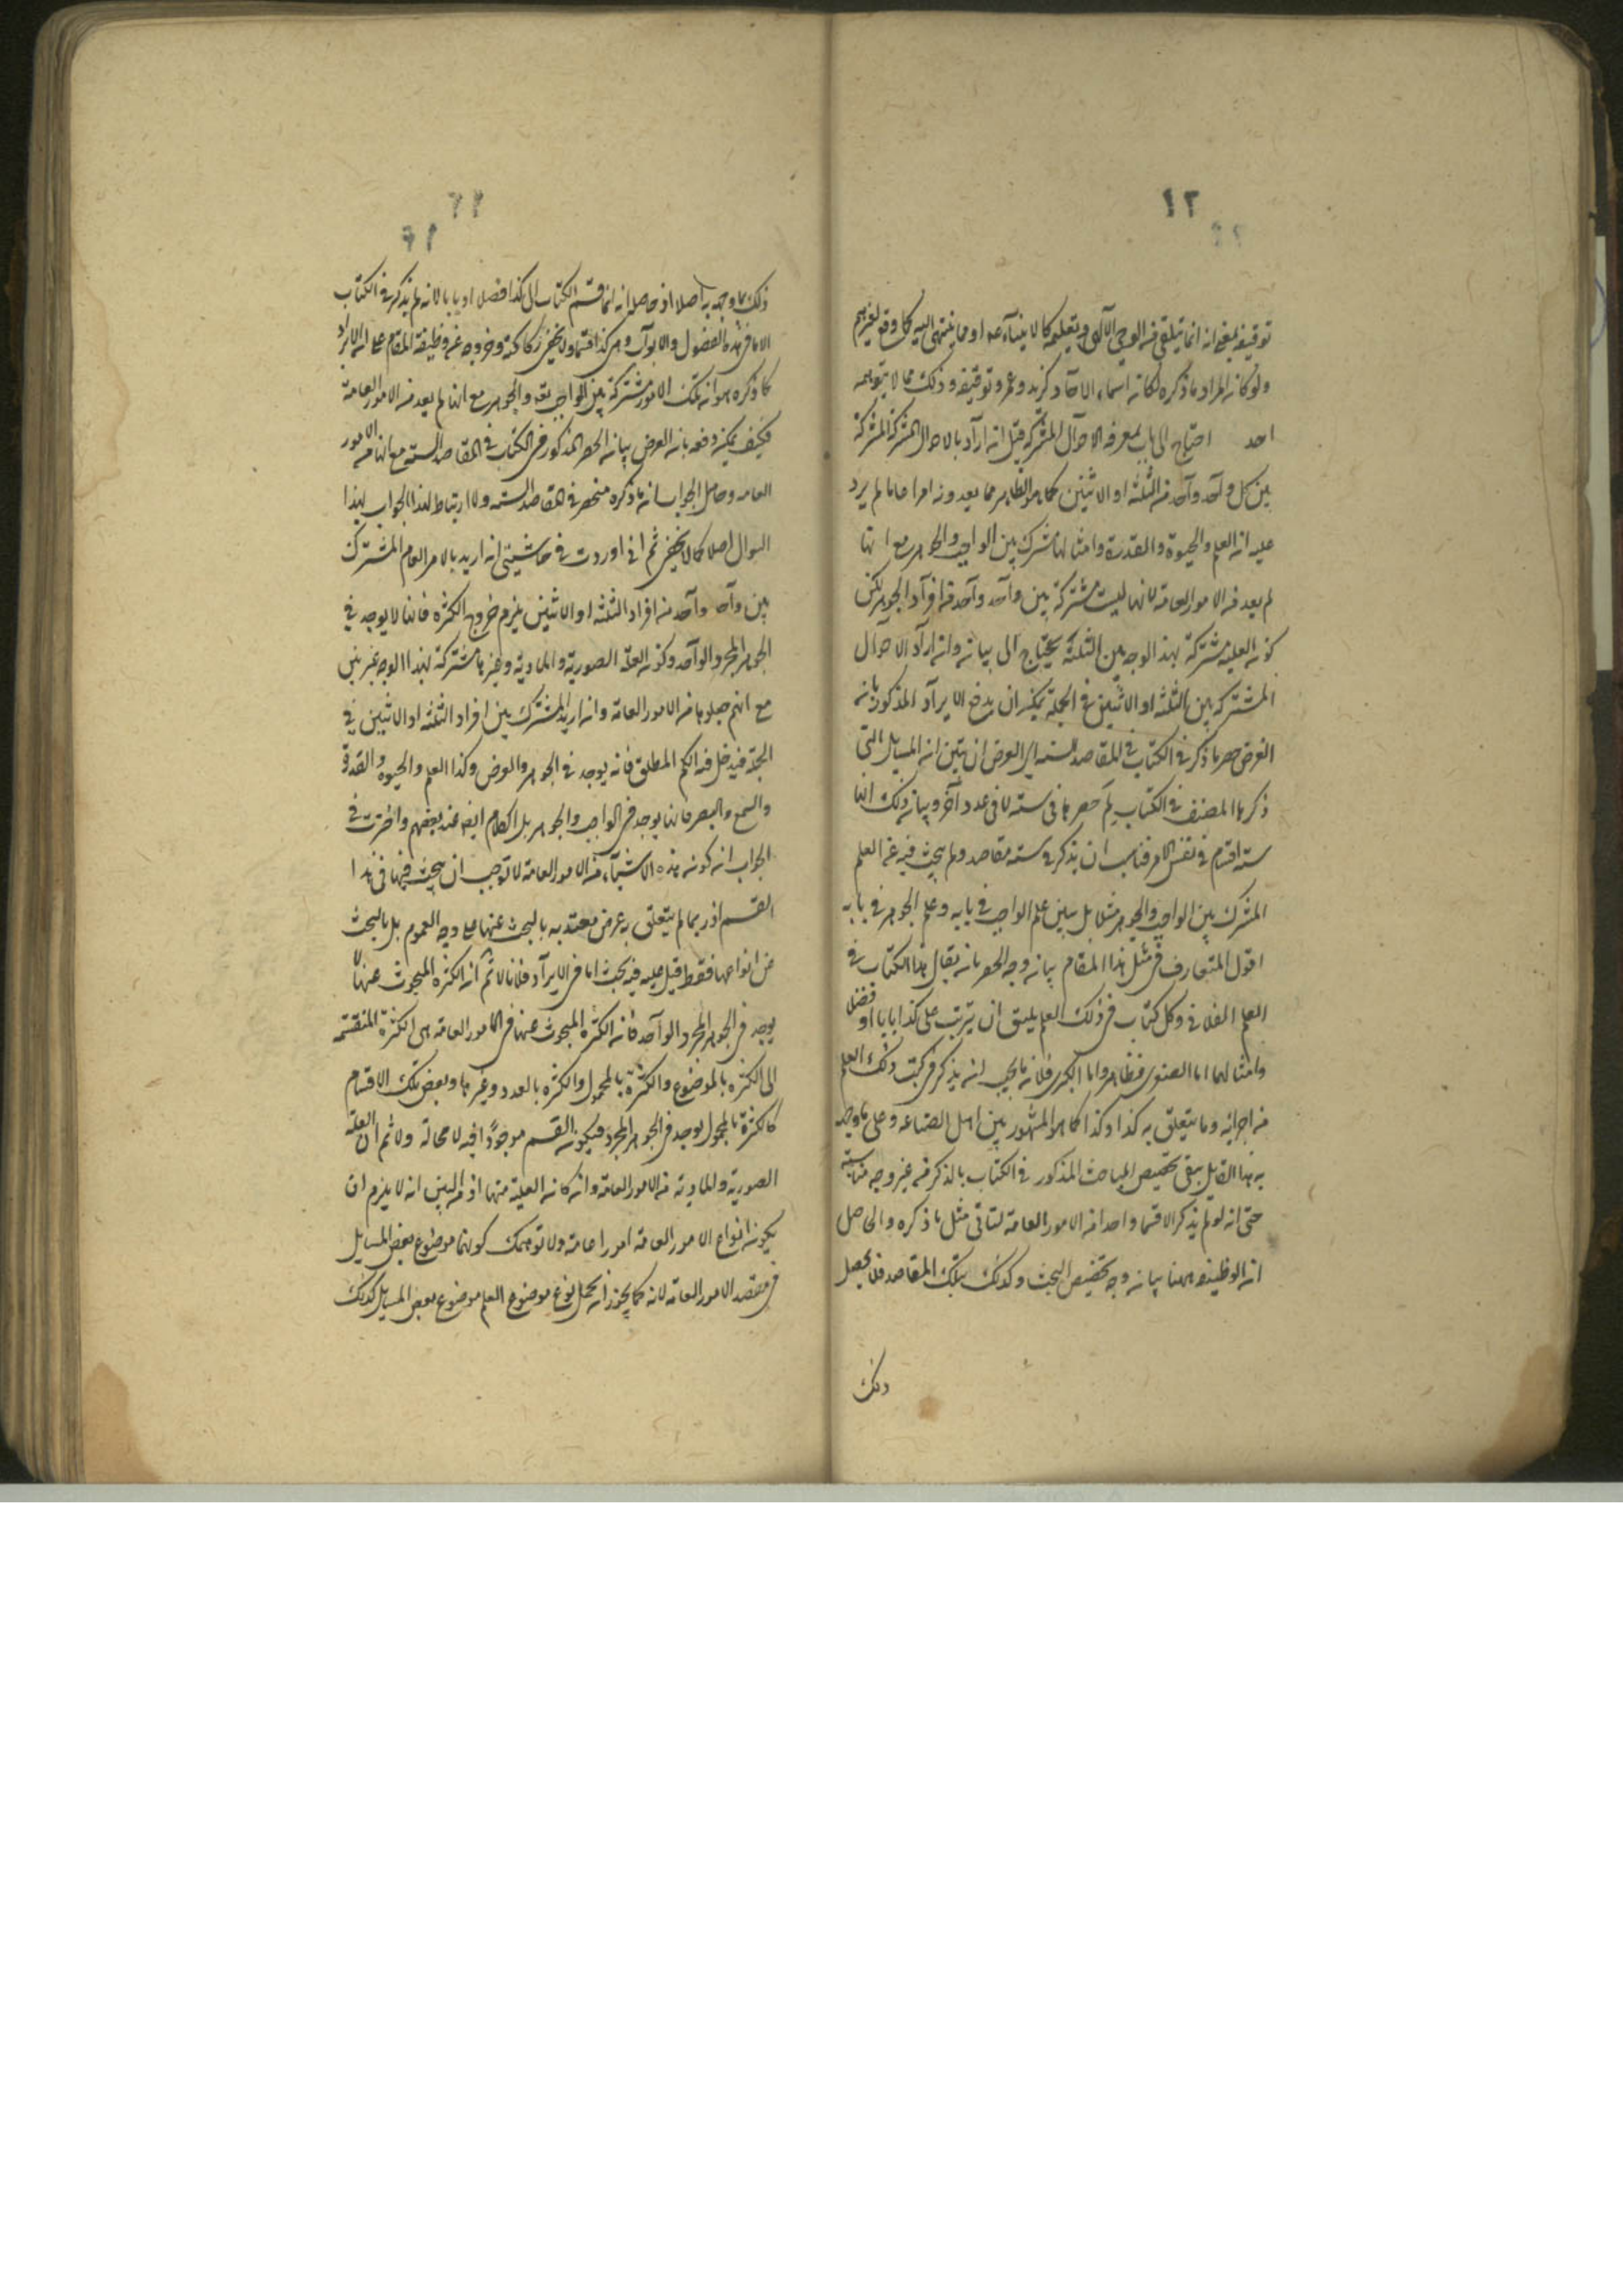 ١٢
توقيفه بمعنى انه انما يتلقى من الوحى الآلهى وبتعليمه كالانبياء او مما ينتهى اليه كما وقع لغيرهم
ولو كان المراد ما ذكره لكان اسماء الآحاد كزيد وعمرو توقيفه وذلك مما لا يتوهمه
احد احتاج الى باب لمعرفة الاحوال المشتركة قيل ان اراد بالاحوال المشتركة المشتركة
بين كل واحد واحد من الثلثة او الاثنين كما هو الظاهر مما يعدونه امرا عاما لم يرد
عليه ان العلم والحيوة والقدرة وامثالها مشترك بين الواجب والجوهر مع انها
لم يعد من الامور العامة لانها ليست مشتركة بين واحد واحد من افراد الجوهر لكن
كون العلية مشتركة بهذا الوجه بين الثلثة يحتاج الى بيان وان اراد الاحوال
المشتركة بين الثلثة او الاثنين فى الجملة يمكن ان يدفع الايراد المذكور بان
الغرض حصر ما ذكر فى الكتاب فى المقاصد الستة اى الغرض ان يتبين ان المسايل التى
ذكرها المصنف فى الكتاب لم حصرها فى ستة لا فى عدد آخر وبيان ذلك انها
ستة اقسام فى نفس الامر فناسب ان يذكر فى ستة مقاصد ولم يبحث فيه عن العلم
المشترك بين الواجب والجوهر مثلا بل يبين علم الواجب فى بابه وعلم الجوهر فى بابه
اقول المتعارف فى مثل هذا المقام بيان وجه الحصر بان يقال هذا الكتاب فى
العلم الفلانى وكل كتاب فى ذلك العلم يليق ان يترتب على كذا بابا او فصلا
وامثالهما اما الصغرى فظاهر واما الكبرى فلان ما يجب ان يذكر فى كتب ذلك العلم
من اجزائه وما يتعلق به كذا وكذا كما هو المشهور بين اهل الصناعة وعلى ما وجه
به هذا القايل يبقى تخصيص المباحث المذكور فى الكتاب بالذكر من غير وجه مناسبة
حتى انه لو لم يذكر الا قسما واحدا من الامور العامة لتأتى مثل ما ذكره والحاصل
ان الوظيفة ههنا بيان وجه تخصيص البحث وكذلك بتلك المقاصد فلا يحصل
ذلك
ذلك بما وجه به اصلا اذ حاصله انه انما قسم الكتاب الى كذا فصلا او بابا لانه لم يذكر فى الكتاب
الا ما فى هذه الفصول والابواب وهى كذا قسما ولا يخفى ركاكته وخروجه عن وظيفة المقام على ان الايراد
كما ذكره هو ان تلك الامور مشتركة بين الواجب تعه والجوهر مع انها لم يعد من الامور العامة
فكيف يمكن دفعه بان الغرض بيان الحصر المذكور فى الكتاب فى المقاصد الستة مع انها من الامور
العامة وحاصل الجواب ان ما ذكره منحصر فى المقاصد الستة ولا ارتباط لهذا الجواب بهذا
السوال اصلا كما لا يخفى ثم انى اوردت فى حاشيتى ان اريد بالامر العام المشترك
بين واحد واحد من افراد الثلثة او الاثنين يلزم خروج الكثرة فانها لا يوجد فى
الجوهر المجرد الواحد وكون العلة الصورية والمادية وغيرها مشتركة بهذا الوجه غير بين
مع انهم جعلوها من الامور العامة وان اريد المشترك بين افراد الثلثة او الاثنين فى
الجملة فيدخل فيه الكم المطلق فانه يوجد فى الجوهر والعرض وكذا العلم والحيوة والقدرة
والسمع والبصر فانها يوجد فى الواجب والجوهر بل الكلام ايضا عند بعضهم واخترت فى
الجواب ان كون هذه الاشياء من الامور العامة لا توجب ان يبحث فيها فى هذا
القسم اذ ربما لم يتعلق به غرض معتد به بالبحث عنها على وجه العموم بل بالبحث
عن انواعها فقط قيل عليه فيه بحث اما فى الايراد فلانا لا ثم ان الكثرة المبحوث عنها لا
يوجد فى الجوهر المجرد الواحد فان الكثرة المبحوث عنها فى الامور العامة هى الكثرة المنقسمة
الى الكثرة بالموضوع والكثرة بالمحمول والكثرة بالعدد وغيرها وبعض تلك الاقسام
كالكثرة بالمحمول يوجد فى الجوهر المجرد فيكون القسم موجودا فيه لا محالة ولا ثم ان العلة
الصورية والمادية من الامور العامة وان كان العلية منها اذ من البين انه لا يلزم ان
يكون انواع الامور العامة امورا عامة ولا توهمك كونها موضوع بعض المسايل
فى مقصد الامور العامة لانه كما يجوز ان يجعل نوع موضوع العلم موضوع بعض المسايل كذلك